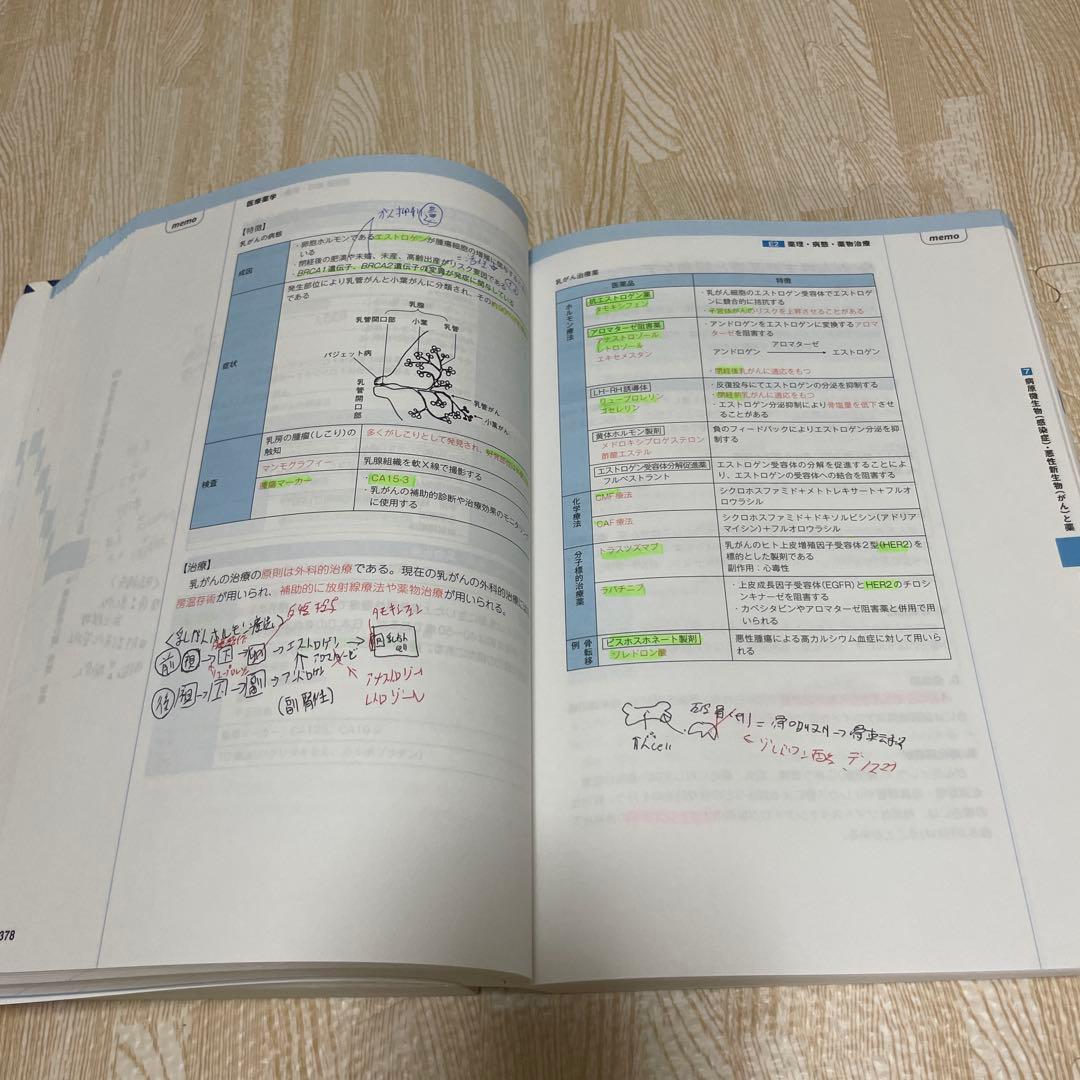 memo
医療薬学
【特徴】
乳がんの病態
成因
・卵胞ホルモンであるエストロゲンが腫瘍細胞の増殖に関与する
いる
・閉経後の肥満や未婚、未産、高齢出産がリスク要因である
・BRCA1遺伝子、BRCA2遺伝子の変異が発症に関与している
症状
発生部位により乳管がんと小葉がんに分類され、その
である
乳腺
乳管開口部
小葉
乳管
パジェット病
乳管開口部
乳管がん
小葉がん
検査
乳房の腫瘤(しこり)の
触知
多くがしこりとして発見され、
マンモグラフィー
乳腺組織を軟X線で撮影する
腫瘍マーカー
・CA15-3
・乳がんの補助的診断や治療効果のモニタリング
に使用する
【治療】
乳がんの治療の原則は外科的治療である。現在の乳がんの外科的治療には
房温存術が用いられ、補助的に放射線療法や薬物治療が用いられる。
タモキシフェン
<乳がんホルモン療法>
前 視→下→卵→エストロゲン→
アロマターゼ
リュープロレリン
後 視→下→副→アンドロゲン
(副腎性)
アナストロゾール
レトロゾール
378
E2 薬理・病態・薬物治療
memo
乳がん治療薬
医薬品
特徴
ホルモン療法
抗エストロゲン薬
タモキシフェン
・乳がん細胞のエストロゲン受容体でエストロゲ
ンに競合的に拮抗する
・子宮体がんのリスクを上昇させることがある
アロマターゼ阻害薬
アナストロゾール
レトロゾール
エキセメスタン
・アンドロゲンをエストロゲンに変換するアロマ
ターゼを阻害する
アロマターゼ
アンドロゲン → エストロゲン
・閉経後乳がんに適応をもつ
LH-RH誘導体
リュープロレリン
ゴセレリン
・反復投与にてエストロゲンの分泌を抑制する
・閉経前乳がんに適応をもつ
・エストロゲン分泌抑制により骨塩量を低下させ
ることがある
黄体ホルモン製剤
メドロキシプロゲステロン
酢酸エステル
負のフィードバックによりエストロゲン分泌を抑
制する
エストロゲン受容体分解促進薬
フルベストラント
エストロゲン受容体の分解を促進することによ
り、エストロゲンの受容体への結合を阻害する
化学療法
CMF療法
シクロホスファミド+メトトレキサート+フルオ
ロウラシル
CAF療法
シクロホスファミド+ドキソルビシン(アドリア
マイシン)+フルオロウラシル
分子標的治療薬
トラスツズマブ
乳がんのヒト上皮増殖因子受容体2型(HER2)を
標的とした製剤である
副作用:心毒性
ラパチニブ
・上皮成長因子受容体(EGFR)とHER2のチロシ
ンキナーゼを阻害する
・カペシタビンやアロマターゼ阻害薬と併用で用
いられる
骨転移例
ビスホスホネート製剤
ゾレドロン酸
悪性腫瘍による高カルシウム血症に対して用いら
れる
7 病原微生物(感染症)・悪性新生物(がん)と薬